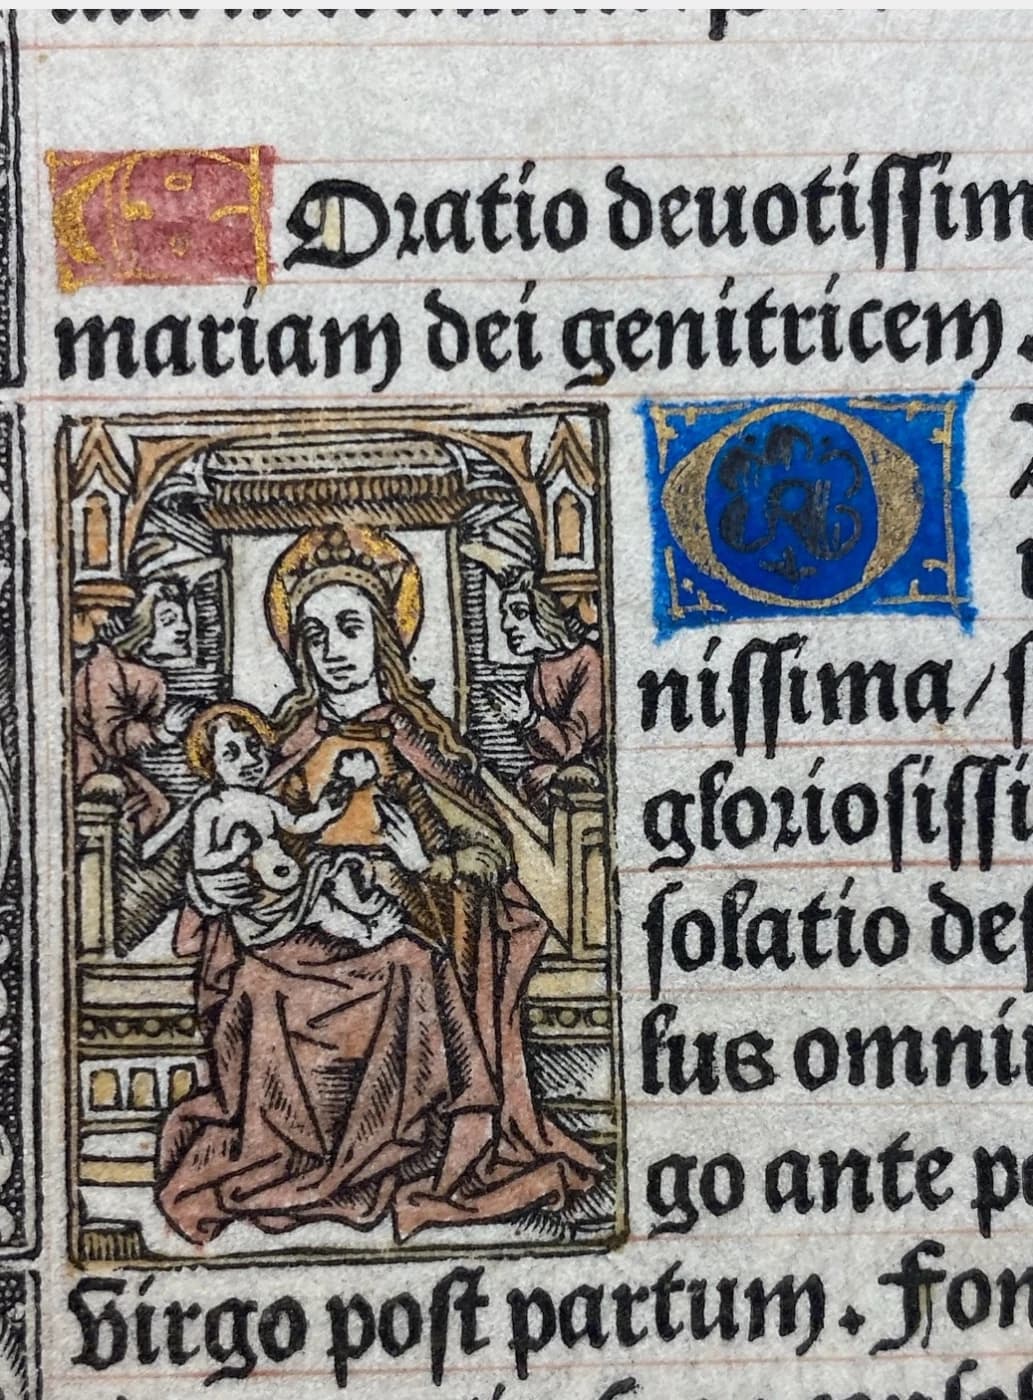 Oratio deuotissim
mariam dei genitricem
O
nissima/
gloriosissi
solatio de
lus omni
go ante p
Virgo post partum. Fon